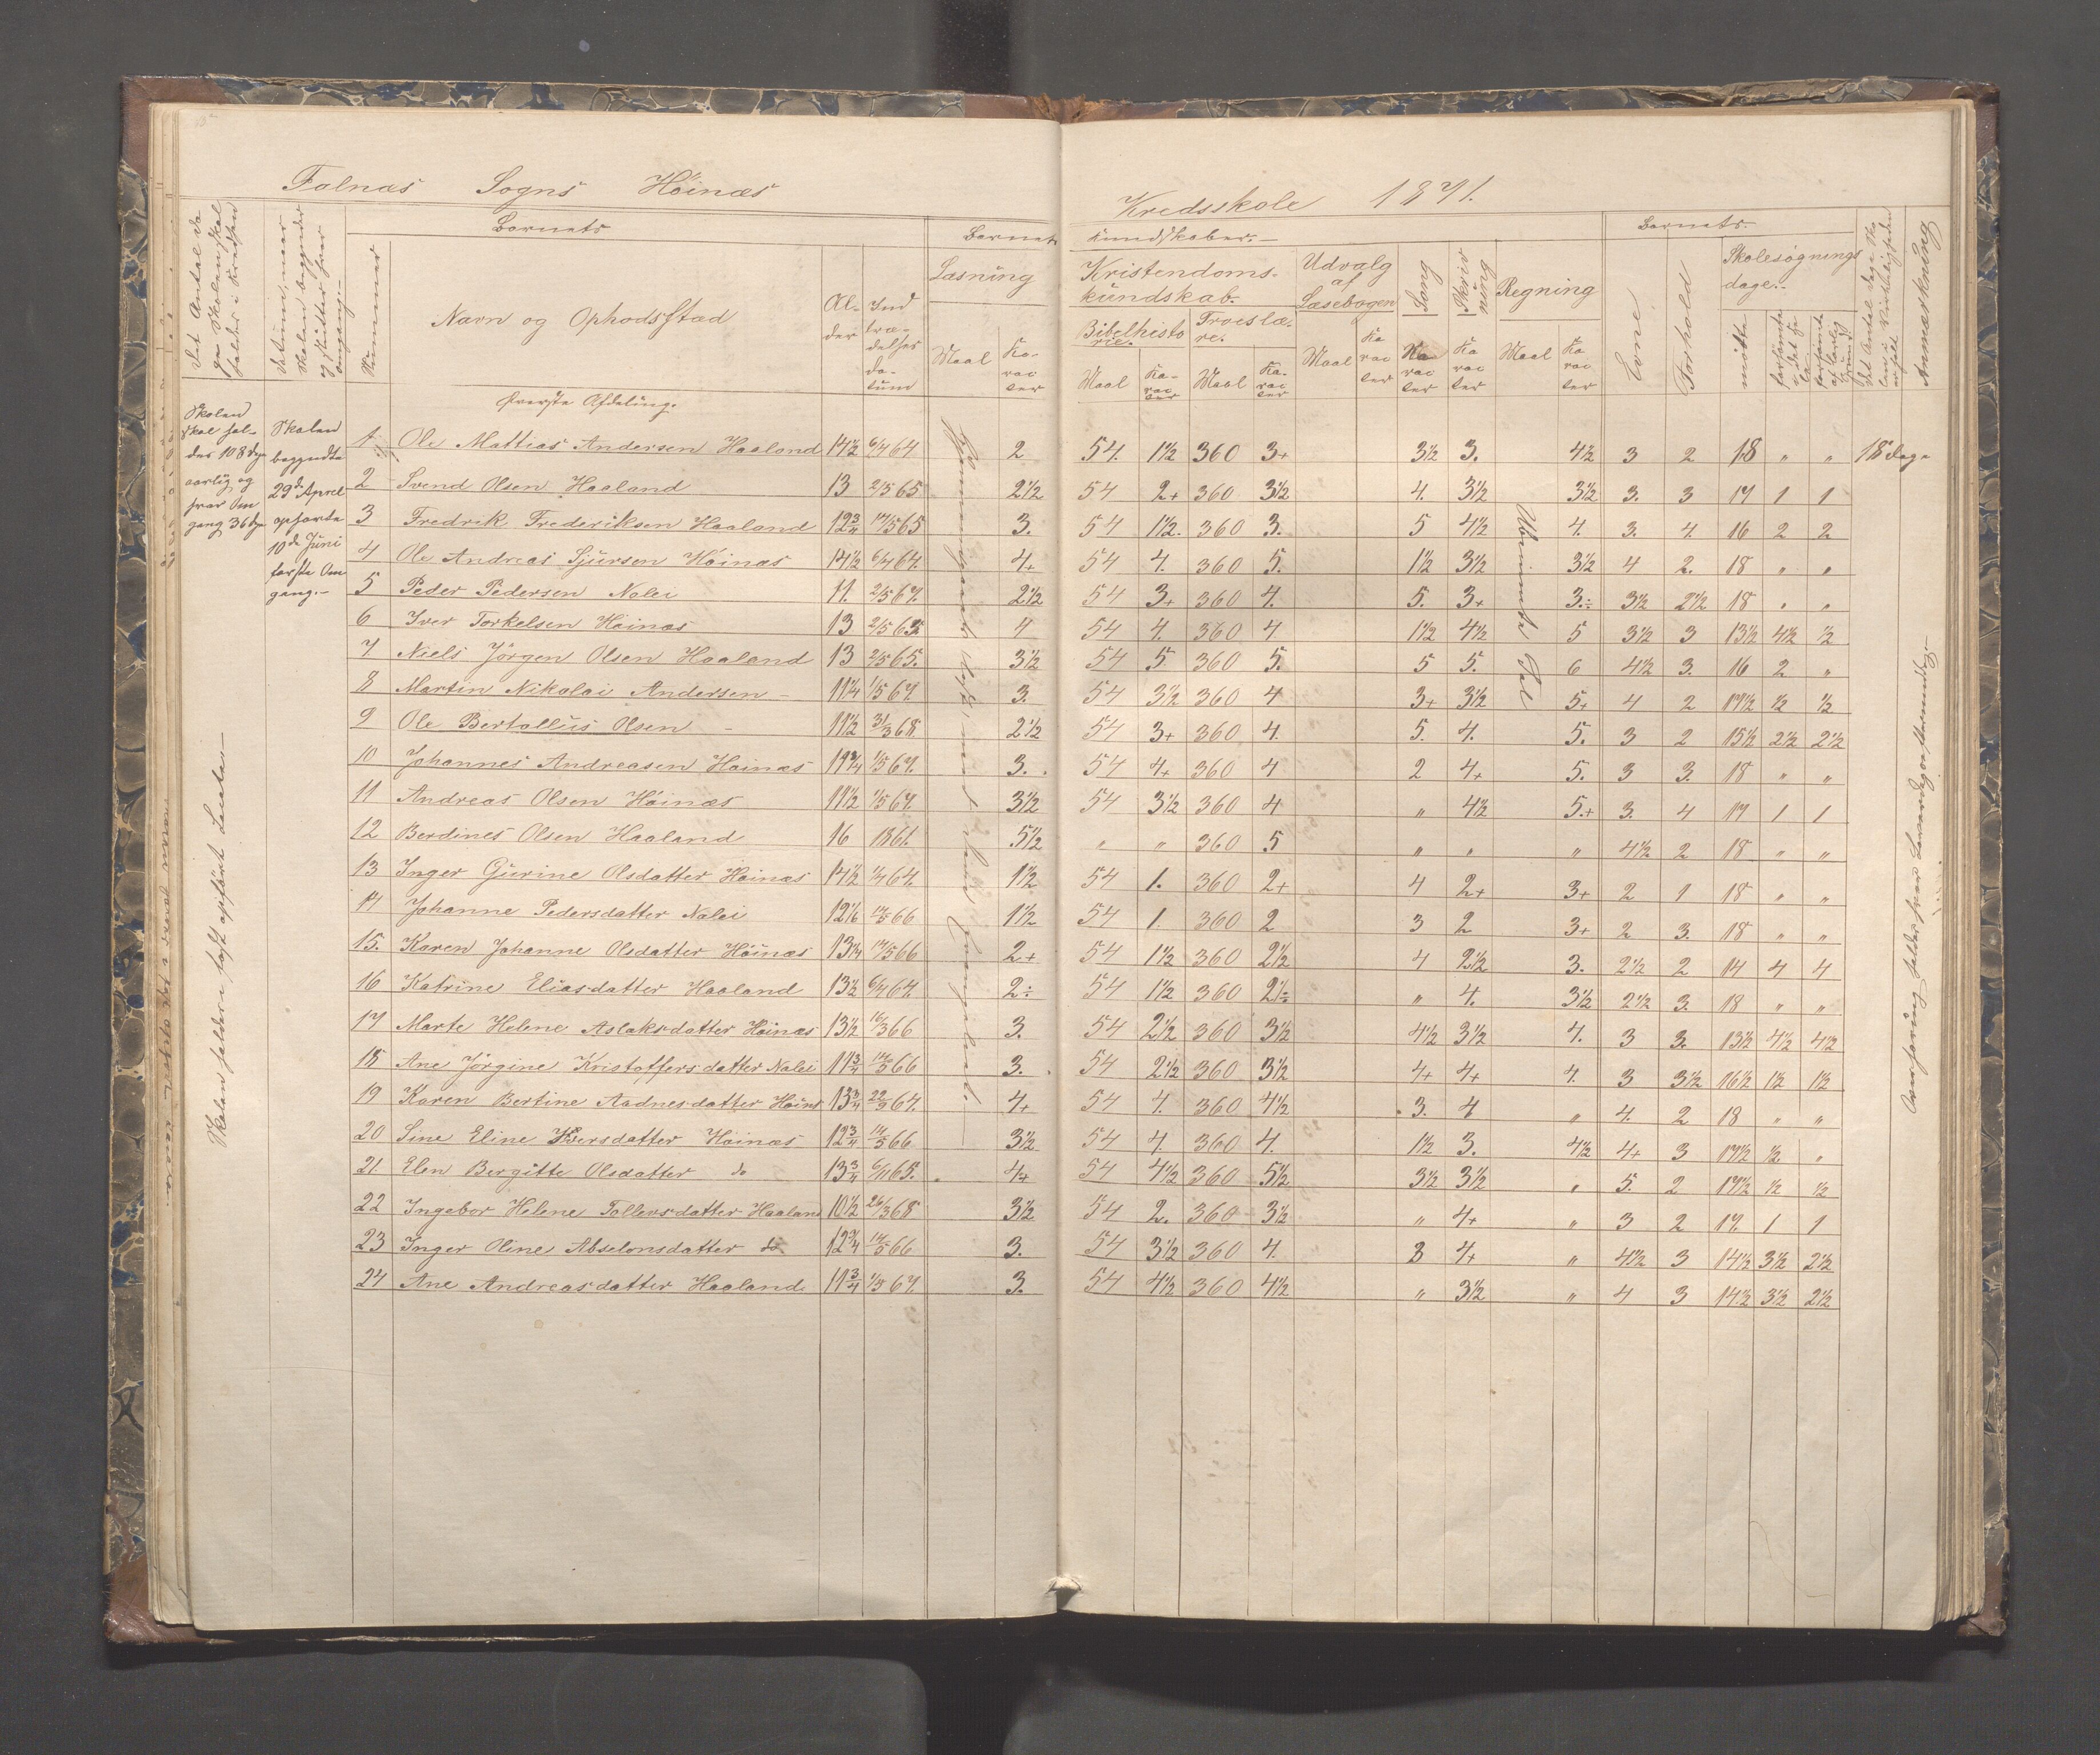 Falnæs Sogns Höinæs Kredsskole 1871.
Barnets
Barnets Kundskaber.
Barnets
Det Antal Dage Skolen skal holdes i Kredsen
Datum, naar Skolen begynder og slutter hver Omgang.
Nummer
Navn og Opholdsstæd
Alder
Indtrædelses datum
Læsning
Maal
Karacter
Kristendomskundskab.
Bibelhistorie.
Troeslære.
Maal
Karacter
Maal
Karacter
Udvalg af Læsebogen
Maal
Karacter
Sang
Karacter
Skrivning
Karacter
Regning
Maal
Karacter
Evne
Forhold
Skolesøgningsdage.
mötte
forsömte i det Hele
forsömte af lovlig Grund
Det Antal Dage Skolen i Virkeligheden er holdt
Anmærkning
Øverste Afdeling.
Skolen skal holdes 108 Dage aarlig og hver Omgang 36 Dage
Skolen begyndte 29de April ophørte 10de Juni første Omgang.
1 Ole Mattias Andersen Haaland 14½ 6/4 64 2 54. 1½ 360 3+ 3½ 3. 4½ 3 2 18 „ „ 18 Dage
2 Svend Olsen Haaland 13 2/5 65 2½ 54 2+ 360 3½ 4. 3½ 3½ 3. 3 17 1 1
3 Fredrik Frederiksen Haaland 12¾ 14/5 65 3. 54 1½. 360 3. 5 4½ 4. 3. 4. 16 2 2
4 Ole Andreas Sjursen Höinæs 14½ 6/4 64. 4+ 54 4. 360 5. 1½ 3½ 3½ 4 2. 18 „ „
5 Peder Pedersen Nalei 11. 2/5 67. 2½ 54 3+ 360 4. 5. 3+ 3.÷ 3½ 2½ 18 „ „
6 Iver Torkelsen Höinæs 13 2/5 65 4 54 4. 360 4 1½ 4½ 5 3½ 3 13½ 4½ ½
7 Niels Jörgen Olsen Haaland 13 2/5 65. 3½ 54 5. 360 5. 5 5. 6 4½ 3. 16 2 „
8 Martin Nikolai Andersen – 11¼ 1/5 67. 3. 54 3½ 360 4 3+ 3½ 5+ 4 2 17½ ½ ½
9 Ole Bertallius Olsen – 11½ 31/3 68 2½ 54 3+ 360 4. 5. 4. 5. 3 2 15½ 2½ 2½
10 Johannes Andreasen Höinæs 11¾ 1/5 67. 3. 54 4+ 360 4 2 4+ 5. 3 3. 18 „ „
11 Andreas Olsen Höinæs 11½ 1/5 67. 3½ 54 3½ 360 4 „ 4½ 5.+ 3. 4 17 1 1
12 Berdines Olsen Haaland 16 1861. 5½ „ „ 360 5 „ „ „ 4½ 2 18 „ „
13 Inger Gurine Olsdatter Höinæs 14½ 1/4 64. 1½ 54 1. 360 2+ 4 2+ 3+ 2 1 18 „ „
14 Johanne Pedersdatter Nalei 12⅙ 14/5 66 1½ 54 1. 360 2 3 2 3+ 2 3. 18 „ „
15. Karen Johanne Olsdatter Höinæs 13¼ 14/5 66 2+ 54 1½ 360 2½ 4 2½ 3. 2½ 2 14 4 4
16 Katrine Eliasdatter Haaland 13½ 6/4 64. 2÷ 54 1½ 360 2½ „ 4. 3½ 2½ 3. 18 „ „
17 Marte Helene Aslaksdatter Höinæs 13½ 16/3 66 3. 54 2½ 360 3½ 4½ 3½ 4. 3 3. 13½ 4½ 4½
18 Ane Jörgine Kristoffersdatter Nalei 11¾ 14/5 66 3. 54 2½ 360 3½ 4+ 4+ 4. 3 3½ 16½ 1½ 1½
19 Karen Bertine Aadnesdatter Höinæs 13¾ 22/9 64. 4+ 54 4. 360 4½ 3. 4 „ 4. 2 18 „ „
20 Sine Eline Iversdatter Höinæs 12¾ 14/5 66 3½ 54 4. 360 4. 1½ 3. 4½ 4+ 3 17½ ½ „
21 Elen Bergitte Olsdatter do 13¾ 6/11 65. 4+ 54 4½ 360 5½ 3½ 3½ „ 5. 2 17½ ½ ½
22 Ingebor Helene Tollevsdatter Haaland 10½ 26/3 68 3½ 54 2. 360 3½ „ 4+ „ 3 2 17. 1 1
23 Inger Oline Abselonsdatter do. 12¾ 14/5 66 3. 54 3½ 360 4. 3 4+ „ 4½ 3 14½ 3½ 2½
24 Ane Andreasdatter Haaland. 11¾ 1/5 67. 3. 54 4½ 360 4½ „ 3½ „ 4 3 14½ 3½ 2½
Skolen holdes i fast opført Locale.